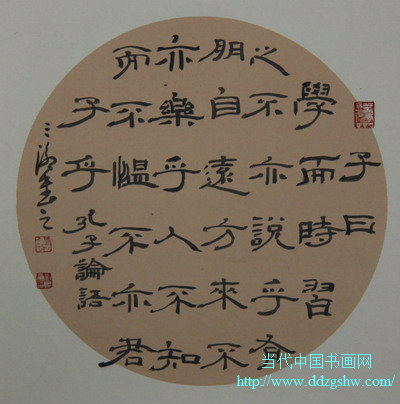 子曰
學而時習
之不亦說乎
朋自遠方來不
亦樂乎人不知
而不慍不亦君
子乎
孔子論語
当代中国书画网
http://www.ddzgshw.com/